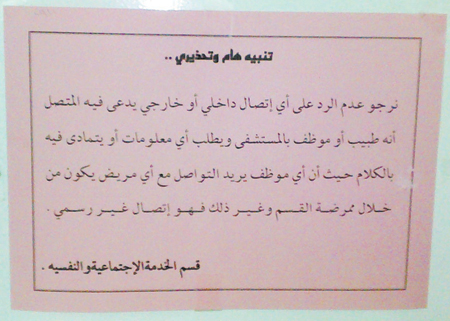 تنبيه هام وتحذيري ..
نرجو عدم الرد على أي إتصال داخلي أو خارجي يدعى فيه المتصل
أنه طبيب أو موظف بالمستشفى ويطلب أي معلومات أو يتمادى فيه
بالكلام حيث أن أي موظف يريد التواصل مع أي مريض يكون من
خلال ممرضة القسم وغير ذلك فهو إتصال غير رسمي .
قسم الخدمة الإجتماعية والنفسيه .